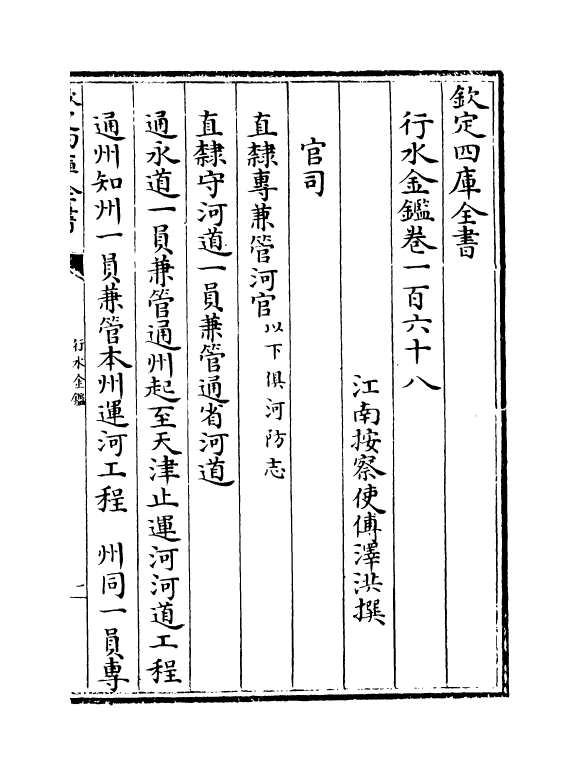 欽定四庫全書
行水金鑑卷一百六十八
江南按察使傅澤洪撰
官司
直隸專兼管河官以下俱河防志
直隸守河道一員兼管通省河道
通永道一員兼管通州起至天津止運河河道工程
通州知州一員兼管本州運河工程　州同一員專
行水金鑑